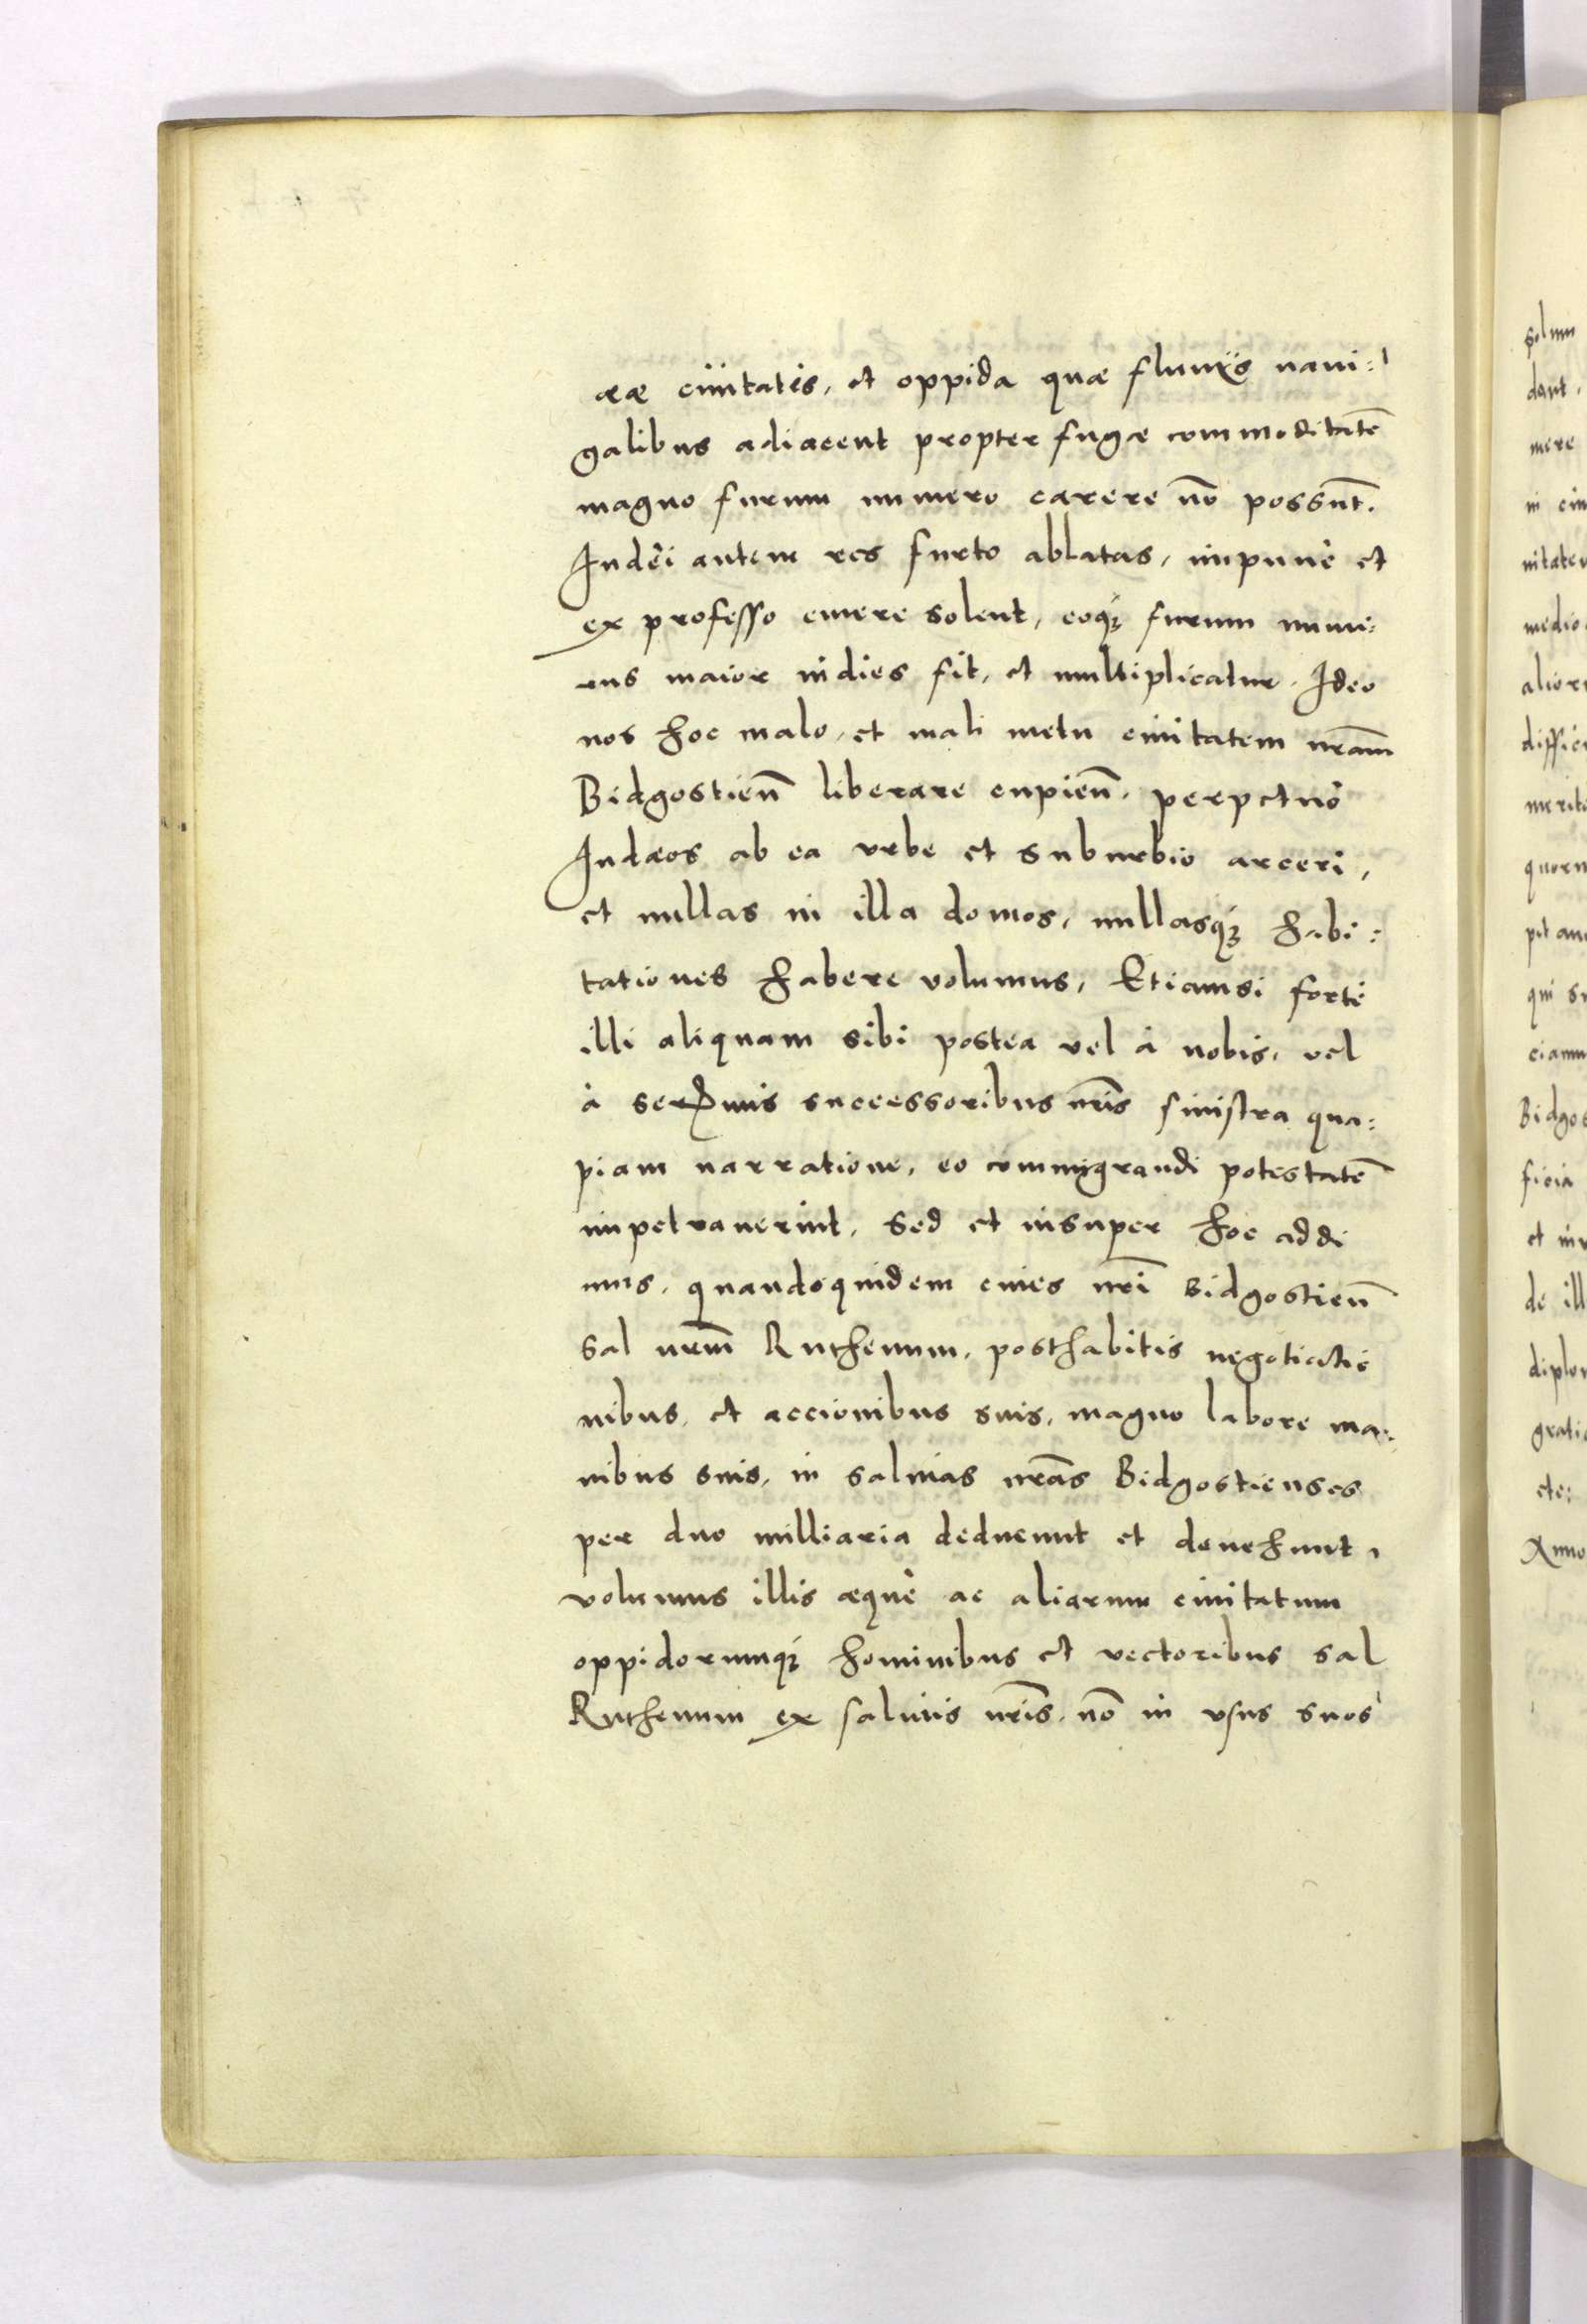 eæ ciuitates, et oppida quæ fluuijs naui:
galibus adiacent propter fugæ commoditatē
magno furum numero carere nō possūt.
Iudei autem res furto ablatas, impunè et
ex professo emere solent, eoq́ꝫ furum nume:
rus maior indies fit, et multiplicatur. Ideo
nos hoc malo, et mali metu ciuitatem nr̄am
Bidgostien̄ liberare cupien̄, perpetuò
Iudæos ab ea vrbe et suburbio arceri,
et nullas in illa domos, nullasq́ꝫ habi:
tationes habere volumus, Etiamsi fortè
illi aliquam sibi postea vel à nobis, vel
à serᵐis successoribus nr̄is sinistra qua:
piam narratione, eo commigrandi potestatē
impetrauerint. Sed et insuper hoc addi
mus, quandoquidem ciues nr̄i Bidgostien̄
Sal nr̄m Ruthenum, posthabitis negotiatio
nibus, et accionibus suis, magno labore ma:
nibus suis, in salinas nr̄as Bidgostienses
per duo milliaria deducunt et deuehunt,
volumus illis æquè ac aliarum ciuitatum
oppidorumq́ꝫ hominibus et vectoribus sal
Ruthenum ex salinis nr̄is, nō in vsus suos
solum
dant.
mere
in ciu
nitatem
medio
alior
diffic
merit
quoru
pit am
qui su
ciamu
Bidgos
ficia
et in
de ill
diplo
gratia
etc:
Anno